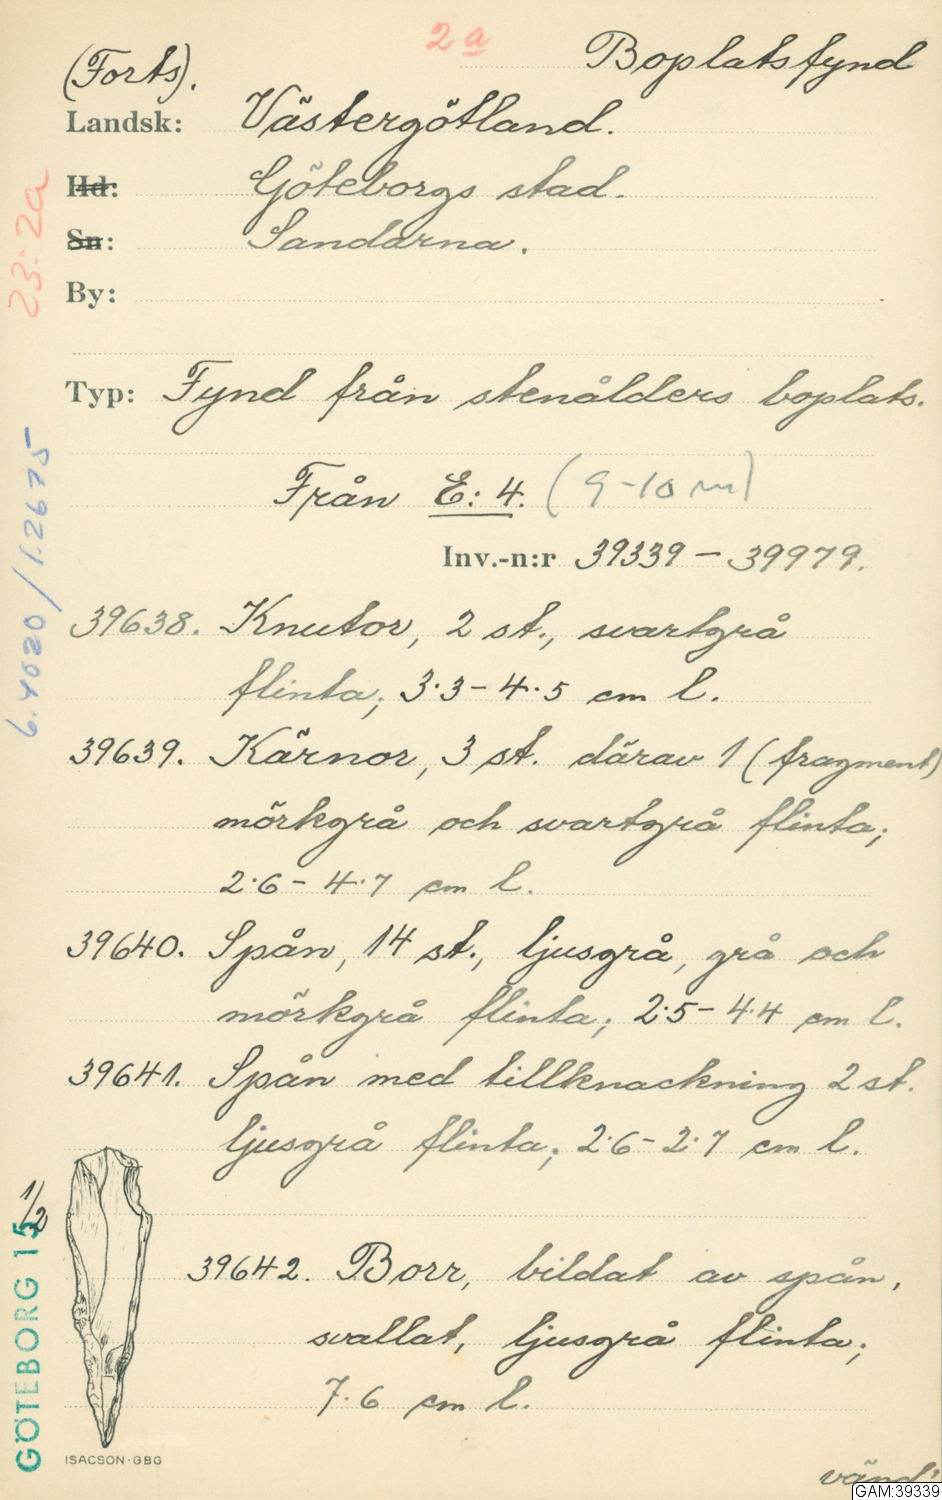 2a
Boplatsfynd
(Forts).
Landsk: Västergötland.
Hd: Göteborgs stad.
Sn: Sandarna.
By:
Typ: Fynd från stenålders boplats.
Från E: 4. (9-10 m)
Inv.-n:r 39339 – 39979.
39638. Knutor, 2 st., svartgrå
flinta; 3·3 – 4·5 cm l.
39639. Kärnor, 3 st. därav 1 (fragment)
mörkgrå och svartgrå flinta;
2·6 – 4·7 cm l.
39640. Spån, 14 st., ljusgrå, grå och
mörkgrå flinta; 2·5 – 4·4 cm l.
39641. Spån med tillknackning 2 st.
ljusgrå flinta; 2·6 – 2·7 cm l.
1/2
39642. Borr, bildat av spån,
svallat, ljusgrå flinta;
7·6 cm l.
ISACSON·GBG
vänd!
23:2a
6.4020/1.2675
GÖTEBORG 15
GAM:39339